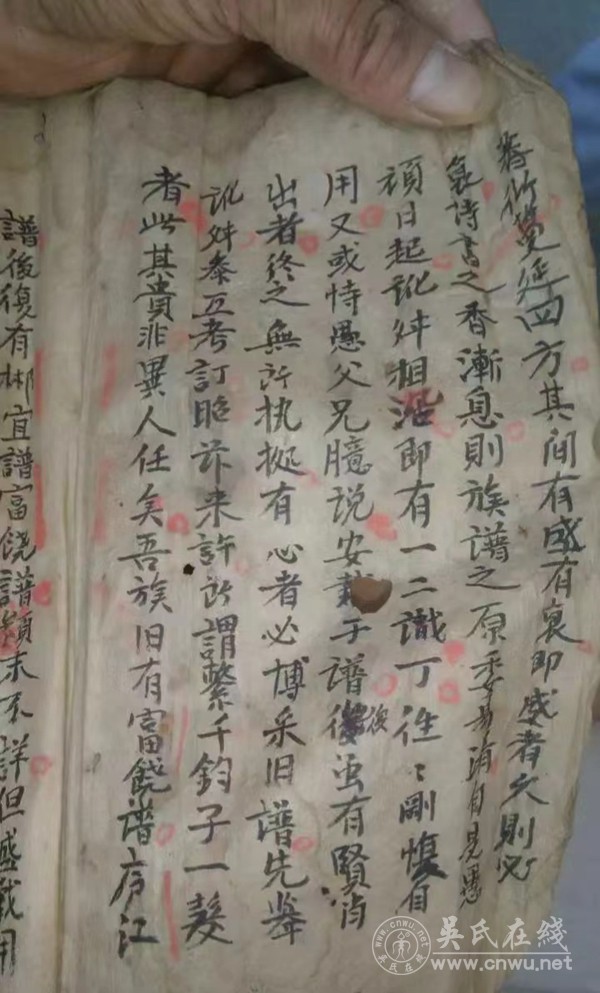 衍蔓延四方其间有盛有衰即盛者久則必
衰詩書之香漸息則族譜之原委易淆自是愚
頑日起訛舛相沿即有一二識丁往〻剛愎自
用又或恃愚父兄臆説妄載于譜後虽有賢肖
出者終之無所执拠有心者必博采旧譜先軰
訛舛叅互考訂昭兹来許所謂繫千鈞于一髮
者此其責非異人任矣吾族旧有富饒譜序江
譜後復有郴宜譜富饒譜顛末不詳但盛載用
吳氏在綫
www.cnwu.net